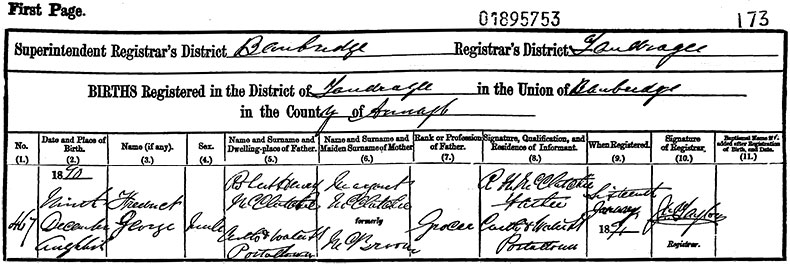 First Page.
01895753
173
Superintendent Registrar's District Banbridge Registrar's District Tandragee
BIRTHS Registered in the District of Tandragee in the Union of Banbridge
in the County of Armagh
No. (1.)
Date and Place of Birth. (2.)
Name (if any). (3.)
Sex. (4.)
Name and Surname and Dwelling-place of Father. (5.)
Name and Surname and Maiden Surname of Mother (6.)
Rank or Profession of Father. (7.)
Signature, Qualification, and Residence of Informant. (8.)
When Registered. (9.)
Signature of Registrar. (10.)
Baptismal Name if added after Registration of Birth, and Date. (11.)
467
1890
December
George
Male
Robert Henry
McClatchie
Portadown
Margaret
McClatchie
formerly
Grocer
R H McClatchie
Father
Portadown
Sixteenth
January
1891
Taylor
Registrar.